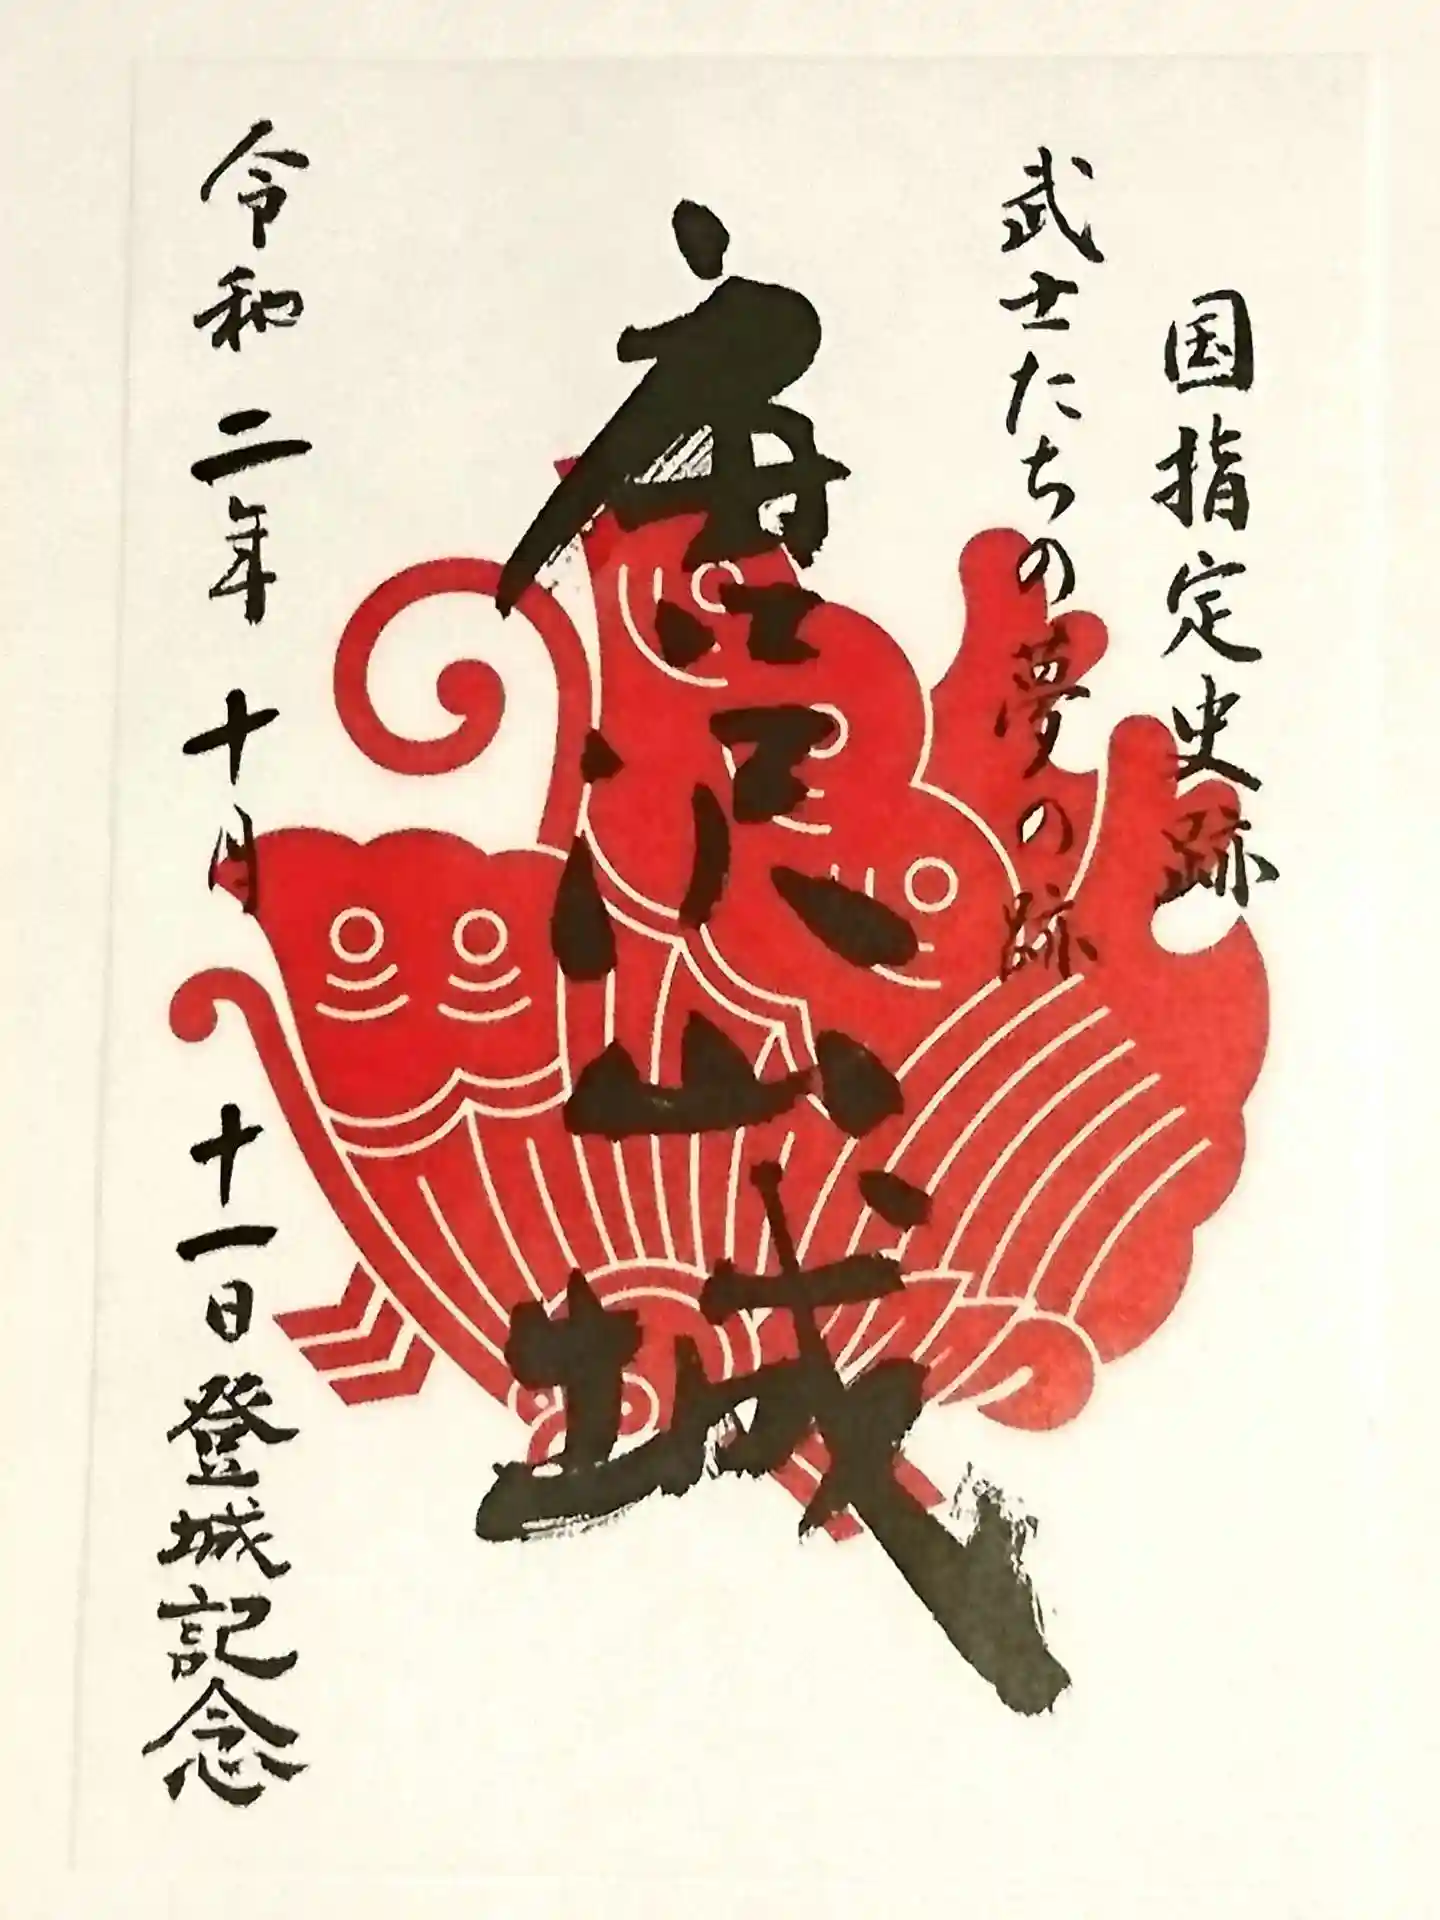 国指定史跡
武士たちの夢の跡
唐沢山城
令和二年十月十一日登城記念